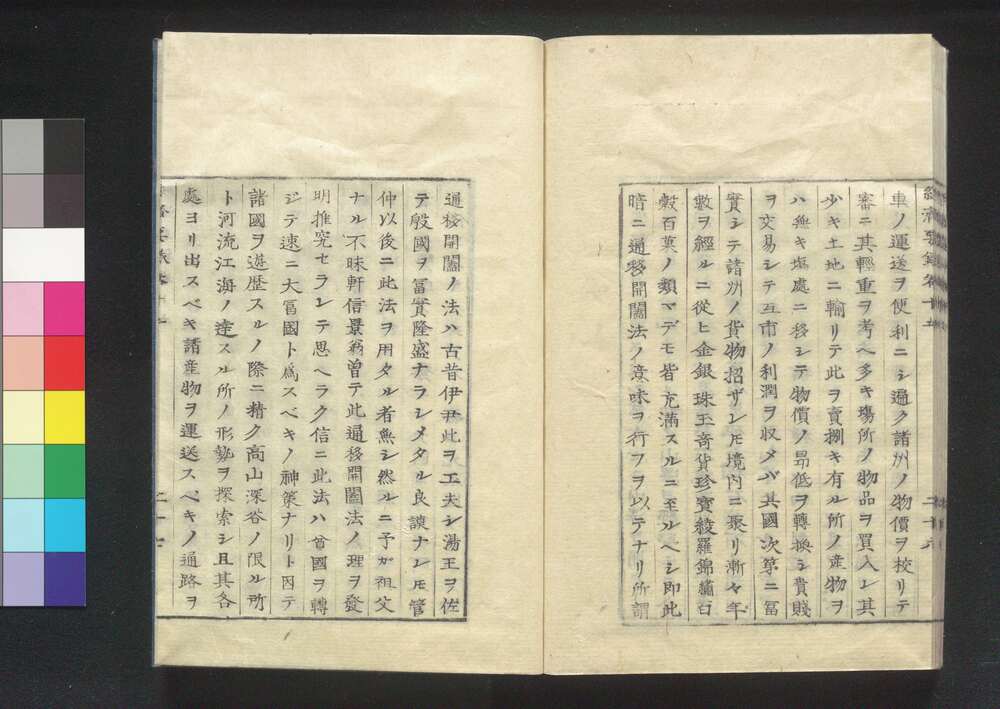 車ノ運送ヲ便利ニシ過ク諸州ノ物價ヲ校リテ
審ニ其輕重ヲ考ヘ多キ塲所ノ物品ヲ買入レ其
少キ土地ニ輸リテ此ヲ賣捌キ有ル所ノ産物ヲ
ハ無キ塲處ニ移シテ物價ノ昂低ヲ轉換シ貴賤
ヲ交易シテ互市ノ利潤ヲ収メバ其國次第ニ冨
實シテ諸州ノ貨物招ザレㇳモ境内ニ聚リ漸々年
數ヲ經ルニ從ヒ金銀珠玉奇貨珍寶綾羅錦繡百
穀百菓ノ類マデモ皆充滿スルニ至ルヘシ即此
暗ニ通移開闔法ノ意味ヲ行フヲ以テナリ所謂
通移開闔ノ法ハ古昔伊尹此ヲ工夫シ湯王ヲ佐
テ殷國ヲ冨實隆盛ナラシメタル良謨ナレㇳモ管
仲以後ニ此法ヲ用タル者無シ然ルニ予ガ祖父
ナル不昧軒信景翁曽テ此通移開闔法ノ理ヲ發
明推究セラレテ思ヘラク信ニ此法ハ貧國ヲ轉
ジテ速ニ大冨國ト爲スベキノ神策ナリト因テ
諸國ヲ遊歴スルノ際ニ精ク高山深谷ノ限ル所
ト河流江海ノ達スル所ノ形勢ヲ探索シ且其各
處ヨリ出スベキ諸産物ヲ運送スベキノ通路ヲ